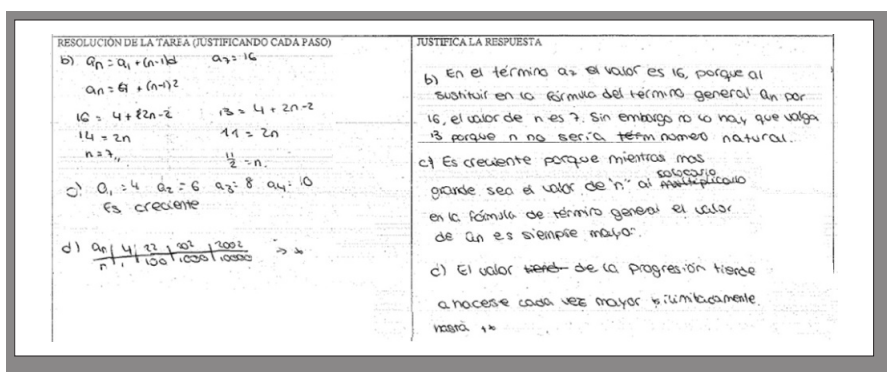 RESOLUCIÓN DE LA TAREA (JUSTIFICANDO CADA PASO)
b) an = a1 + (n-1)d a7 = 16
an = 4 + (n-1)2
16 = 4 + 2n-2 13 = 4 + 2n-2
14 = 2n 11 = 2n
n = 7,, 11/2 = n.
c) a1 = 4 a2 = 6 a3 = 8 a4 = 10
Es creciente
d) an | 4 | 22 | 202 | 2002
n | 1 | 100 | 1000 | 10000
JUSTIFICA LA RESPUESTA
b) En el término a7 el valor es 16, porque al
sustituir en la fórmula del término general an por
16, el valor de n es 7. Sin embargo no lo hay que valga
13 porque n no sería número natural.
c) Es creciente porque mientras mas
grande sea el valor de "n" al
en la fórmula de término general el valor
de an es siempre mayor.
d) El valor de la progresión tiende
a hacerse cada vez mayor ilimitadamente
hasta +∞